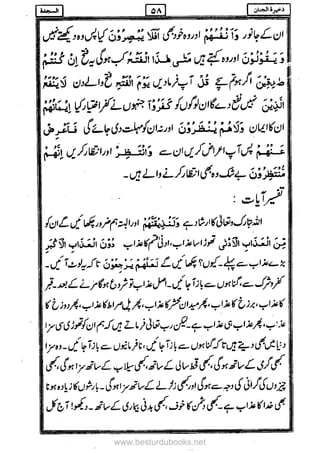 ذخيرة الجنان
۵۸
السجدة
ان کے جانور وَاَنْفُسُهُمْ اور وہ خود بھی اَفَلَا يُبْصِرُوْنَ کیا پس وہ دیکھتے نہیں
وَيَقُوْلُوْنَ اور وہ کہتے ہیں مَتٰى هٰذَا الْفَتْحُ کب ہوگی یہ فتح اِنْ كُنْتُمْ
صٰدِقِيْنَ اگر ہو تم سچے قُلْ آپ فرما دیں يَوْمَ الْفَتْحِ فتح والے دن لَا يَنْفَعُ
الَّذِيْنَ نہیں نفع دے گا ان لوگوں کو كَفَرُوْٓا جنہوں نے کفر اختیار کیا اِيْمَانُهُمْ
ان کا ایمان وَلَا هُمْ يُنْظَرُوْنَ اور نہ ان کو مہلت دی جائے گی فَاَعْرِضْ
عَنْهُمْ پس آپ اعراض کریں ان سے وَانْتَظِرْ اور انتظار کریں اِنَّهُمْ
مُّنْتَظِرُوْنَ بے شک وہ بھی انتظار کرنے والے ہیں۔
تفسیر آیات :
اللہ تبارک و تعالیٰ کا ارشاد ہے وَلَنُذِيْقَنَّهُمْ اور البتہ ہم ضرور چکھائیں گے ان کو
مِّنَ الْعَذَابِ الْاَدْنٰى تھوڑا سا عذاب، ادنیٰ قسم کا عذاب دُوْنَ الْعَذَابِ الْاَكْبَرِ
بڑے عذاب سے پہلے۔ کیوں؟ چکھائیں گے لَعَلَّهُمْ يَرْجِعُوْنَ تاکہ یہ لوٹ آئیں۔
کفر و شرک سے، گناہوں سے باز آ جائیں۔ اصل عذاب تو شروع ہوگا مرنے کے بعد۔ قبر
کا عذاب، برزخ کا عذاب، پھر میدان محشر کا عذاب، پھر پل صراط کا عذاب، پھر دوزخ کا
عذاب، پھر عذاب ہی عذاب ہے۔ لیکن رب تعالیٰ فرماتے ہیں کہ ہم ان کو تھوڑی سی سزا
دنیا میں بھی دیتے ہیں تاکہ گناہوں سے باز آ جائیں، نافرمانیوں سے باز آ جائیں۔ وہ سزا
کبھی گرمی کے ساتھ ہوگی، کبھی قحط سالی کے ساتھ، کبھی سیلاب کے ساتھ سزا ہوگی، کبھی
چیزوں کی گرانی کی وجہ سے ہوگی اور کبھی زلزلے کے ساتھ سزا ہوگی۔ بارشوں کا زیادہ ہونا
بھی خدا کا عذاب ہے۔ کبھی دشمن کا خوف، کبھی بدنی بیماری کے ساتھ۔ دیکھو! آج کل
www.besturdubooks.net